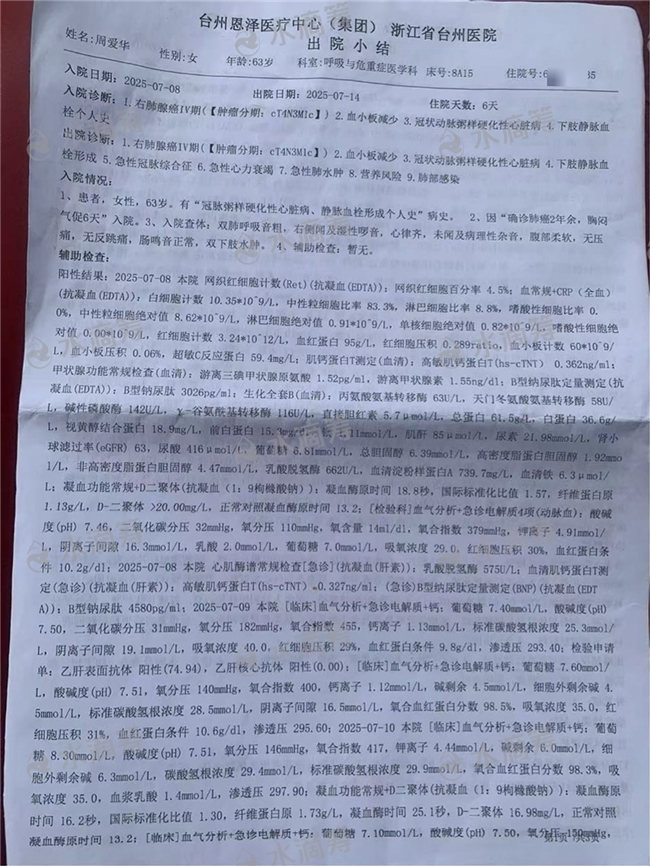 台州恩泽医疗中心（集团） 浙江省台州医院
出 院 小 结
姓名:周爱华 性别:女 年龄:63岁 科室:呼吸与危重症医学科 床号:8A15 住院号:6 35
入院日期: 2025-07-08 出院日期: 2025-07-14 住院天数: 6天
入院诊断: 1.右肺腺癌IV期(【肿瘤分期: cT4N3M1c】) 2.血小板减少 3.冠状动脉粥样硬化性心脏病 4.下肢静脉血
栓个人史
出院诊断: 1.右肺腺癌IV期(【肿瘤分期: cT4N3M1c】) 2.血小板减少 3.冠状动脉粥样硬化性心脏病 4.下肢静脉血
栓形成 5.急性冠脉综合征 6.急性心力衰竭 7.急性肺水肿 8.营养风险 9.肺部感染
入院情况:
1、患者，女性，63岁。有“冠脉粥样硬化性心脏病、静脉血栓形成个人史”病史。 2、因“确诊肺癌2年余，胸闷
气促6天”入院。3、入院查体: 双肺呼吸音粗，右侧闻及湿性啰音，心律齐，未闻及病理性杂音，腹部柔软，无压
痛，无反跳痛，肠鸣音正常，双下肢水肿。 4、辅助检查: 暂无。
辅助检查:
阳性结果: 2025-07-08 本院 网织红细胞计数(Ret)(抗凝血(EDTA)): 网织红细胞百分率 4.5%; 血常规+CRP（全血）
(抗凝血(EDTA)): 白细胞计数 10.35*10^9/L, 中性粒细胞比率 83.3%, 淋巴细胞比率 8.8%, 嗜酸性细胞比率 0.
0%, 中性粒细胞绝对值 8.62*10^9/L, 淋巴细胞绝对值 0.91*10^9/L, 单核细胞绝对值 0.82*10^9/L, 嗜酸性细胞绝
对值 0.00*10^9/L, 红细胞计数 3.24*10^12/L, 血红蛋白 95g/L, 红细胞压积 0.289ratio, 血小板计数 60*10^9/
L, 血小板压积 0.06%, 超敏C反应蛋白 59.4mg/L; 肌钙蛋白T测定(血清): 高敏肌钙蛋白T(hs-cTNT) 0.362ng/ml;
甲状腺功能常规检查(血清): 游离三碘甲状腺原氨酸 1.52pg/ml, 游离甲状腺素 1.55ng/dl; B型钠尿肽定量测定(抗
凝血(EDTA)): B型钠尿肽 3026pg/ml; 生化全套B(血清): 丙氨酸氨基转移酶 63U/L, 天门冬氨酸氨基转移酶 58U/
L, 碱性磷酸酶 142U/L, γ-谷氨酰基转移酶 116U/L, 直接胆红素 5.7μmol/L, 总蛋白 61.5g/L, 白蛋白 36.6g/
L, 视黄醇结合蛋白 18.9mg/L, 前白蛋白 11mmol/L, 肌酐 85μmol/L, 尿素 21.98mmol/L, 肾小
球滤过率(eGFR) 63, 尿酸 416μmol/L, 葡萄糖 6.81mmol/L, 总胆固醇 6.39mmol/L, 高密度脂蛋白胆固醇 1.92mmo
l/L, 非高密度脂蛋白胆固醇 4.47mmol/L, 乳酸脱氢酶 662U/L, 血清淀粉样蛋白A 739.7mg/L, 血清铁 6.3μmol/
L; 凝血功能常规+D二聚体(抗凝血（1: 9枸橼酸钠）): 凝血酶原时间 18.8秒, 国际标准化比值 1.57, 纤维蛋白原
1.13g/L, D-二聚体 >20.00mg/L, 正常对照凝血酶原时间 13.2; [检验科]血气分析+急诊电解质4项(动脉血): 酸碱
度(pH) 7.46, 二氧化碳分压 32mmHg, 氧分压 110mmHg, 氧含量 14ml/dl, 氧合指数 379mmHg, 钾离子 4.91mmol/
L, 阴离子间隙 16.3mmol/L, 乳酸 2.0mmol/L, 葡萄糖 7.0mmol/L, 吸氧浓度 29.0, 红细胞压积 30%, 血红蛋白条
件 10.2g/dl; 2025-07-08 本院 心肌酶谱常规检查[急诊](抗凝血(肝素)): 乳酸脱氢酶 575U/L; 血清肌钙蛋白T测
定(急诊)(抗凝血(肝素)): 高敏肌钙蛋白T(hs-cTNT) 0.327ng/ml; (急诊)B型纳尿肽定量测定(BNP)(抗凝血(EDT
A)): B型钠尿肽 4580pg/ml; 2025-07-09 本院 [临床]血气分析+急诊电解质+钙: 葡萄糖 7.40mmol/L, 酸碱度(pH)
7.50, 二氧化碳分压 31mmHg, 氧分压 182mmHg, 氧合指数 455, 钙离子 1.13mmol/L, 标准碳酸氢根浓度 25.3mmol/
L, 阴离子间隙 19.1mmol/L, 吸氧浓度 40.0, 红细胞压积 29%, 血红蛋白条件 9.8g/dl, 渗透压 293.40; 检验申请
单: 乙肝表面抗体 阳性(74.94), 乙肝核心抗体 阳性(0.00); [临床]血气分析+急诊电解质+钙: 葡萄糖 7.60mmol/
L, 酸碱度(pH) 7.51, 氧分压 140mmHg, 氧合指数 400, 钙离子 1.12mmol/L, 碱剩余 4.5mmol/L, 细胞外剩余碱 4.
5mmol/L, 标准碳酸氢根浓度 28.5mmol/L, 阴离子间隙 16.5mmol/L, 氧合血红蛋白分数 98.5%, 吸氧浓度 35.0, 红
细胞压积 31%, 血红蛋白条件 10.6g/dl, 渗透压 295.60; 2025-07-10 本院 [临床]血气分析+急诊电解质+钙: 葡萄
糖 8.30mmol/L, 酸碱度(pH) 7.51, 氧分压 146mmHg, 氧合指数 417, 钾离子 4.44mmol/L, 碱剩余 6.0mmol/L, 细
胞外剩余碱 6.3mmol/L, 碳酸氢根浓度 29.4mmol/L, 标准碳酸氢根浓度 29.9mmol/L, 氧合血红蛋白分数 98.3%, 吸
氧浓度 35.0, 血浆乳酸 1.4mmol/L, 渗透压 297.90; 凝血功能常规+D二聚体(抗凝血（1: 9枸橼酸钠）): 凝血酶原
时间 16.2秒, 国际标准化比值 1.30, 纤维蛋白原 1.73g/L, 凝血酶时间 25.1秒, D-二聚体 16.98mg/L, 正常对照
凝血酶原时间 13.2; [临床]血气分析+急诊电解质+钙: 葡萄糖 7.10mmol/L, 酸碱度(pH) 7.50, 氧分压 150mmHg,
水滴筹